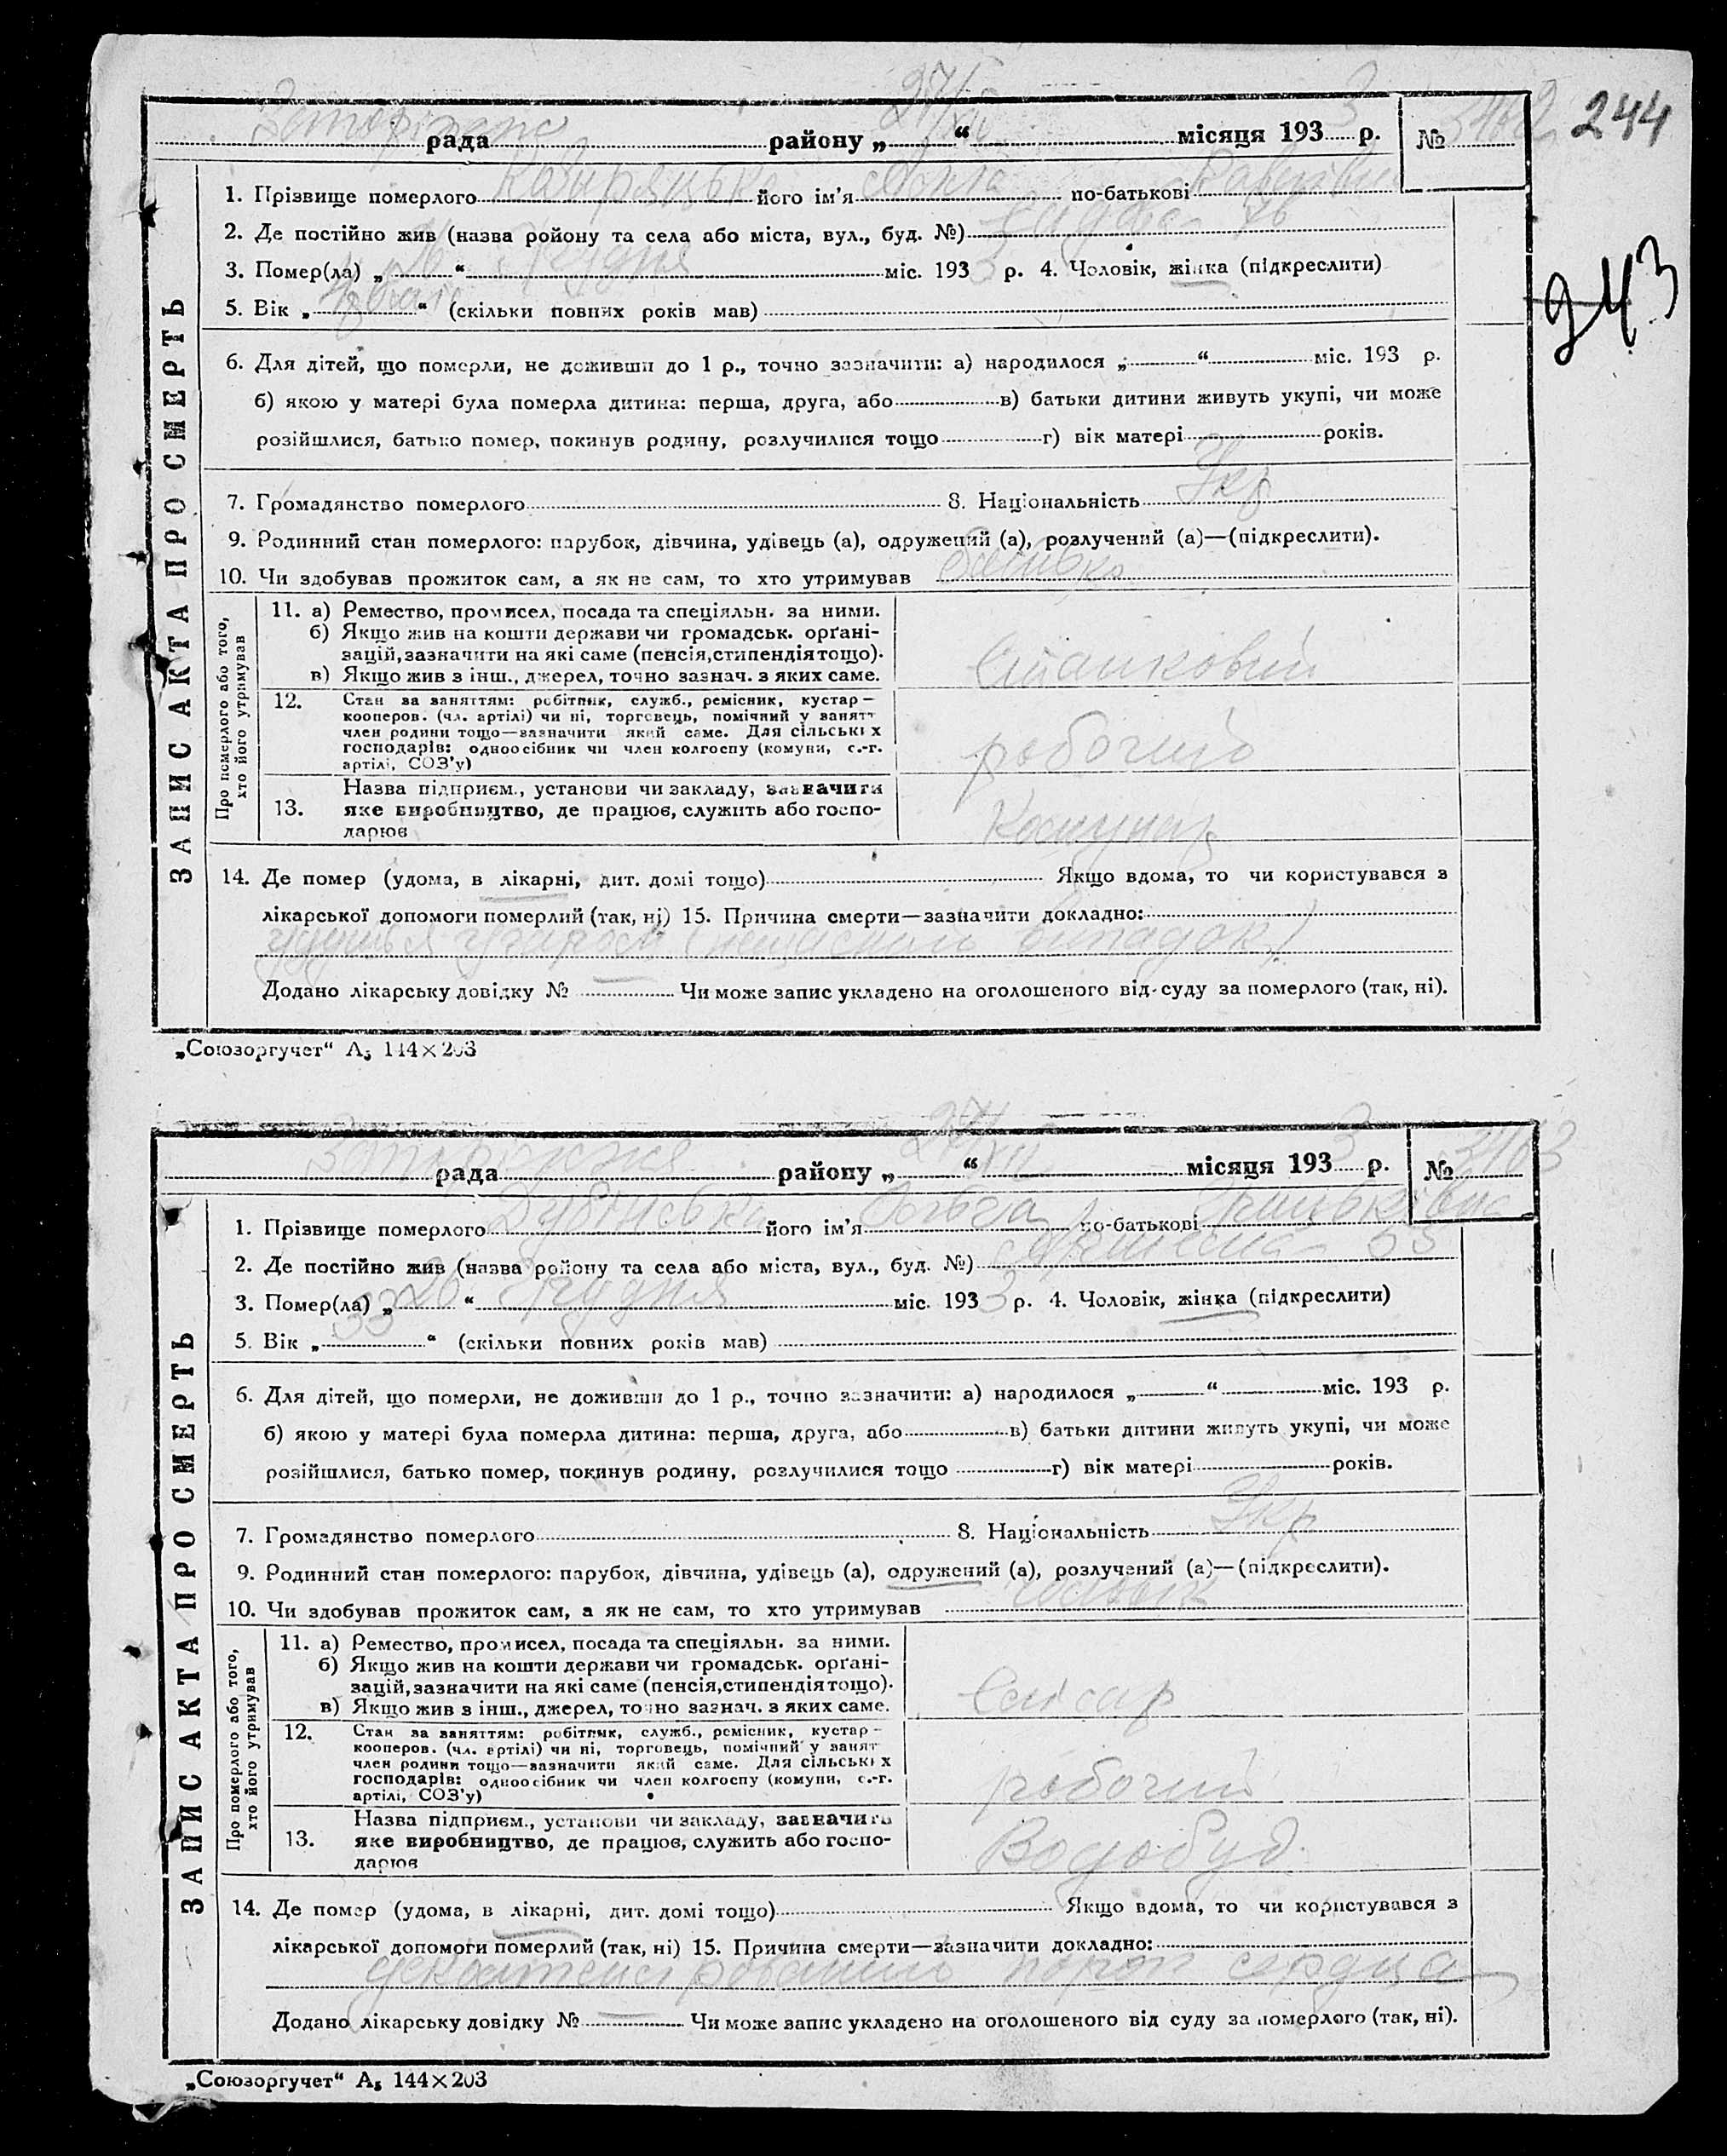 244
243
Запоріжжя рада району „27/XII“ місяця 1933 р. № 3162
1. Прізвище померлого його ім’я по-батькові
2. Де постійно жив (назва ройону та села або міста, вул., буд. №)
3. Помер(ла) „26“ Грудня міс. 1933 р. 4. Чоловік, жінка (підкреслити)
5. Вік „ “ (скільки повних років мав)
6. Для дітей, що померли, не доживши до 1 р., точно зазначити: а) народилося „ “ міс. 193 р.
б) якою у матері була померла дитина: перша, друга, або в) батьки дитини живуть укупі, чи може
розійшлися, батько помер, покинув родину, розлучилися тощо г) вік матері років.
7. Громадянство померлого 8. Національність Укр
9. Родинний стан померлого: парубок, дівчина, удівець (а), одружений (а), розлучений (а)—(підкреслити).
10. Чи здобував прожиток сам, а як не сам, то хто утримував батько
ЗАПИС АКТА ПРО СМЕРТЬ
Про померлого або того,
хто його утримував
11. а) Ремество, промисел, посада та спеціяльн. за ними.
б) Якщо жив на кошти держави чи громадськ. орґані-
зацій, зазначити на які саме (пенсія, стипендія тощо).
в) Якщо жив з інш., джерел, точно зазнач. з яких саме.
Станковий
12. Стан за заняттям: робітник, служб., ремісник, кустар —
кооперов. (чл. артілі) чи ні, торговець, помічний у занятт
член родини тощо—зазначити який саме. Для сільських
господарів: одноосібник чи член колгоспу (комуни, с.-г.
артілі, СОЗ’у)
робочий
Назва підприєм., установи чи закладу, зазначити
13. яке виробництво, де працює, служить або госпо-
дарює
Комунар
14. Де помер (удома, в лікарні, дит. домі тощо) Якщо вдома, то чи користувався з
лікарської допомоги померлий (так, ні) 15. Причина смерти—зазначити докладно:
угаром випадок)
Додано лікарську довідку № Чи може запис укладено на оголошеного від суду за померлого (так, ні).
„Союзоргучет“ А₅ 144×203
Запоріжжя рада району „27/XII“ місяця 1933 р. № 3163
1. Прізвище померлого його ім’я Ольга по-батькові
2. Де постійно жив (назва ройону та села або міста, вул., буд. №)
3. Помер(ла) „26“ Грудня міс. 1933 р. 4. Чоловік, жінка (підкреслити)
5. Вік „33“ (скільки повних років мав)
6. Для дітей, що померли, не доживши до 1 р., точно зазначити: а) народилося „ “ міс. 193 р.
б) якою у матері була померла дитина: перша, друга, або в) батьки дитини живуть укупі, чи може
розійшлися, батько помер, покинув родину, розлучилися тощо г) вік матері років.
7. Громадянство померлого 8. Національність Укр
9. Родинний стан померлого: парубок, дівчина, удівець (а), одружений (а), розлучений (а)—(підкреслити).
10. Чи здобував прожиток сам, а як не сам, то хто утримував чоловік
ЗАПИС АКТА ПРО СМЕРТЬ
Про померлого або того,
хто його утримував
11. а) Ремество, промисел, посада та спеціяльн. за ними.
б) Якщо жив на кошти держави чи громадськ. орґані-
зацій, зазначити на які саме (пенсія, стипендія тощо).
в) Якщо жив з інш., джерел, точно зазнач. з яких саме.
Слюсар
12. Стан за заняттям: робітник, служб., ремісник, кустар —
кооперов. (чл. артілі) чи ні, торговець, помічний у занят
член родини тощо—зазначити який саме. Для сільських
господарів: одноосібник чи член колгоспу (комуни, с.-г.
артілі, СОЗ’у)
робочий
Назва підприєм., установи чи закладу, зазначить
13. яке виробництво, де працює, служить або госпо-
дарює
Водобуд.
14. Де помер (удома, в лікарні, дит. домі тощо) Якщо вдома, то чи користувався з
лікарської допомоги померлий (так, ні) 15. Причина смерти—зазначити докладно:
порок сердца
Додано лікарську довідку № Чи може запис укладено на оголошеного від суду за померлого (так, ні).
„Союзоргучет“ А₅ 144×203